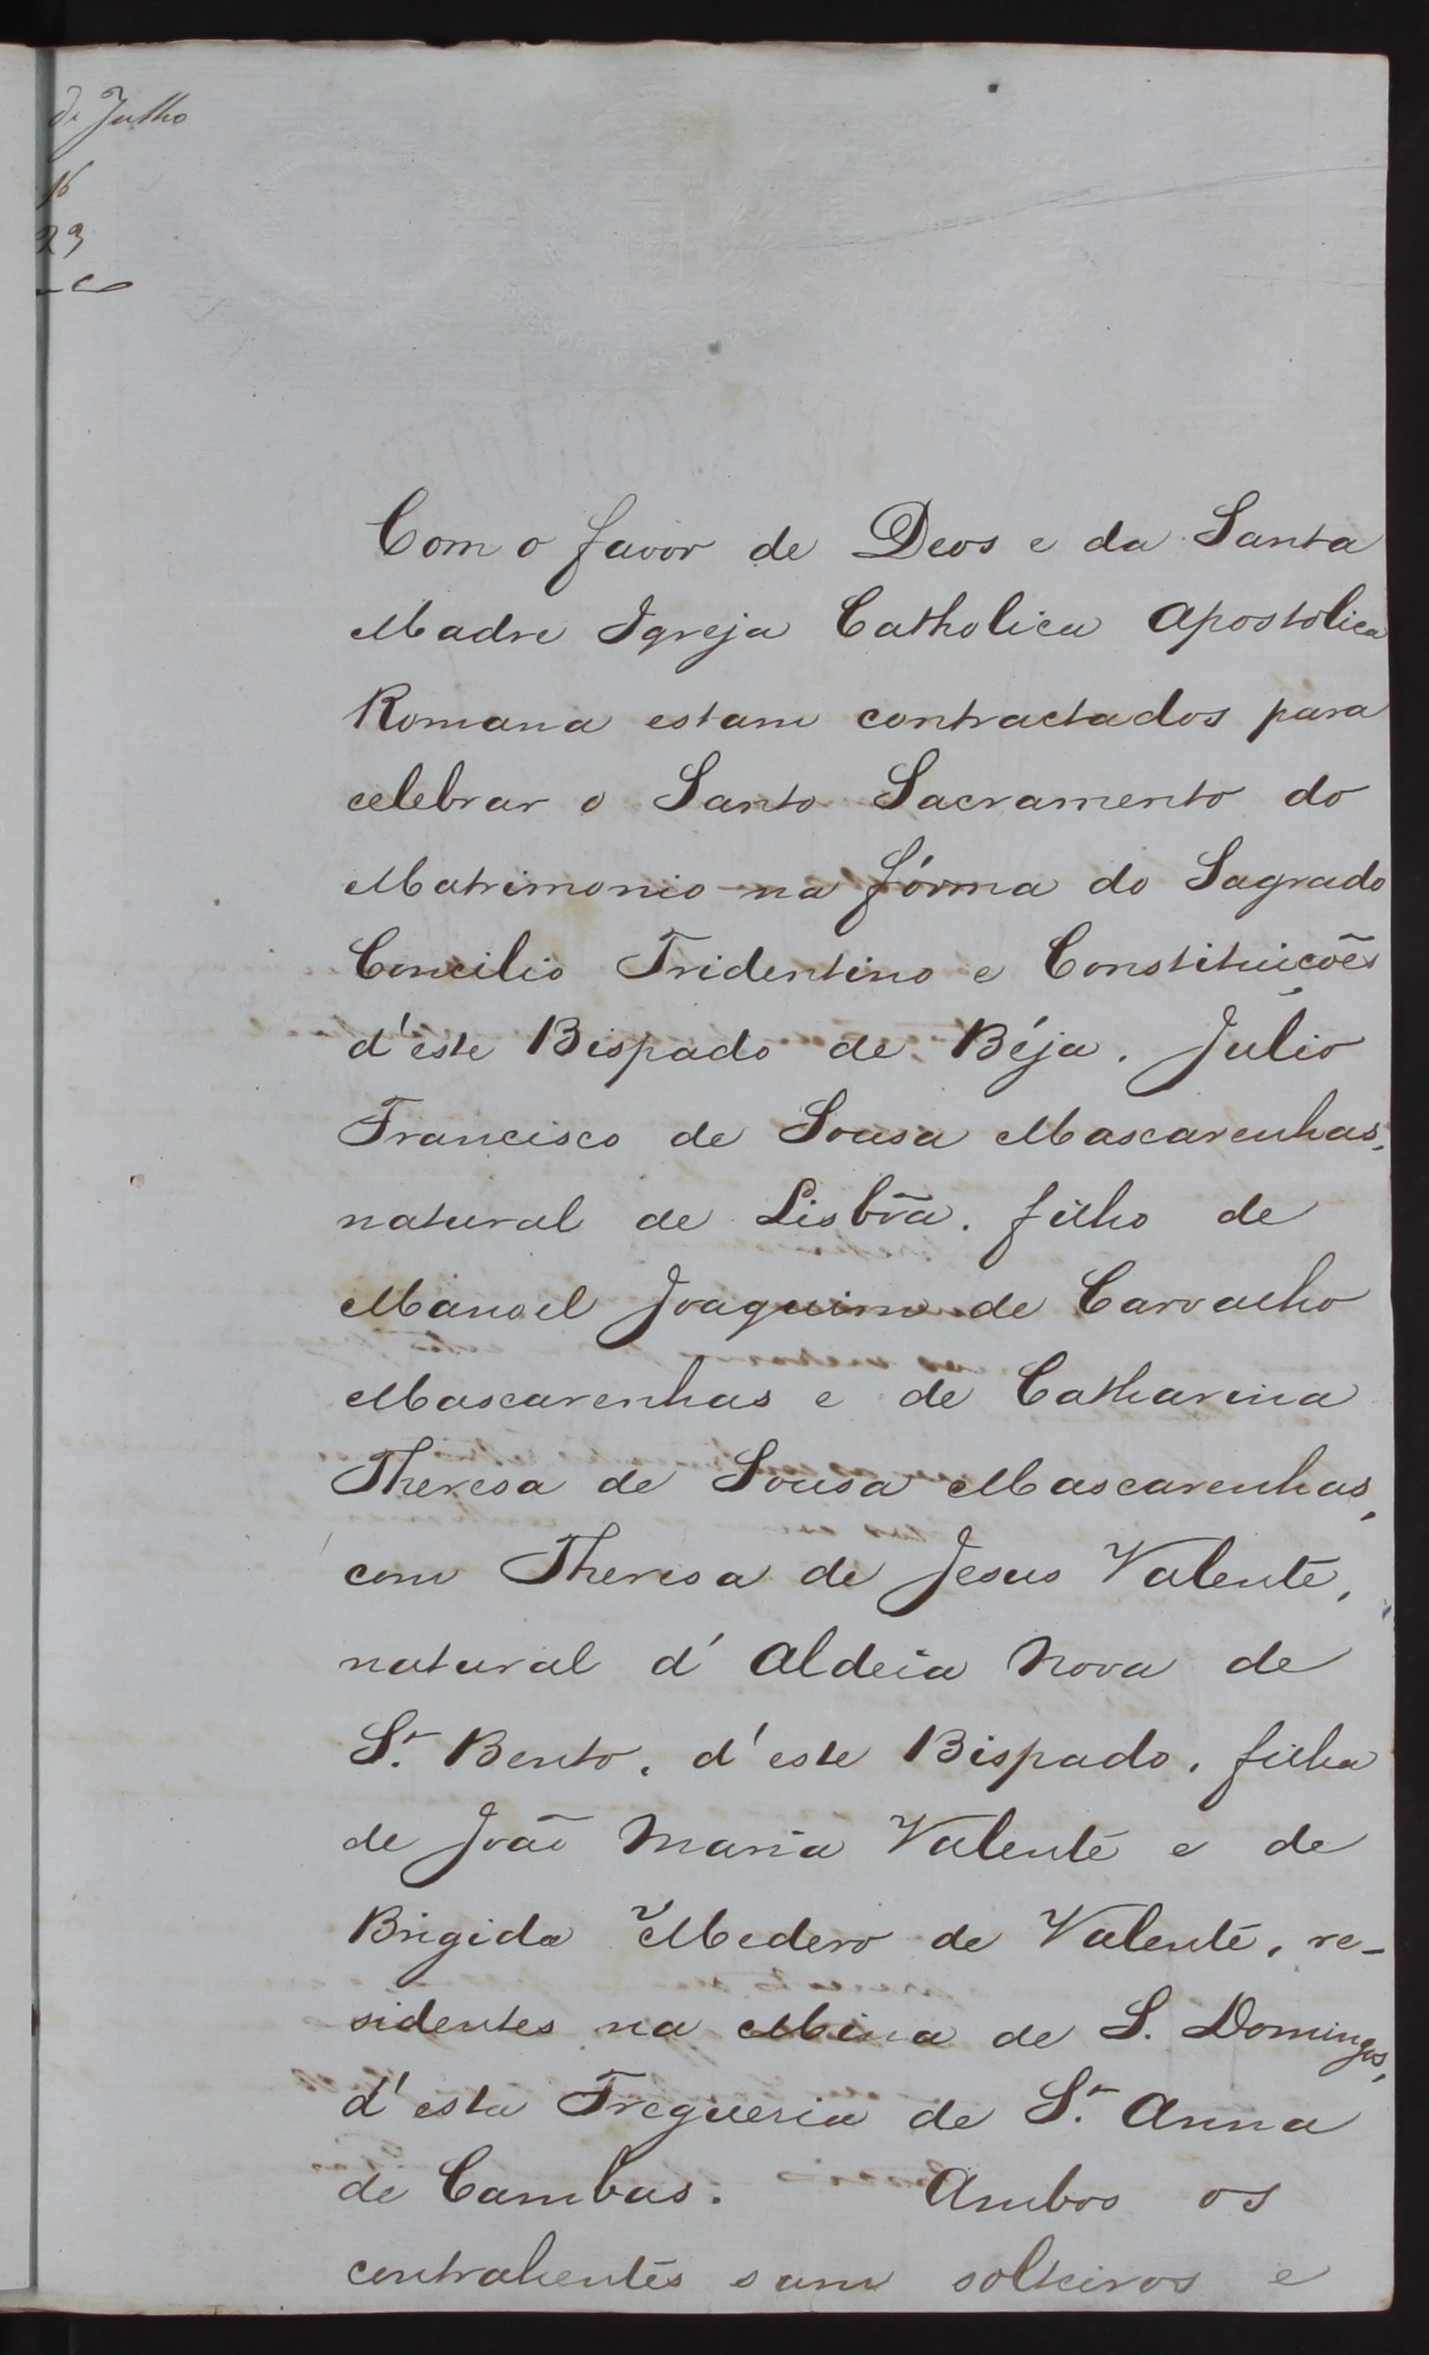 de Julho
16
23
Com o favor de Deos e da Santa
Madre Igreja Catholica Apostolica
Romana estam contractados para
celebrar o Santo Sacramento do
Matrimonio na fórma do Sagrado
Concilio Tridentino e Constituições
d'este Bispado de Béja. Julio
Francisco de Sousa Mascarenhas,
natural de Lisbõa. filho de
Manoel Joaquim de Carvalho
Mascarenhas e de Catharina
Theresa de Sousa Mascarenhas,
com Theresa de Jesus Valente,
natural d'Aldeia Nova de
S.n Bento, d'este Bispado, filha
de João Maria Valente e de
Brigida Medero de Valente, re-
sidentes na Mina de S. Domingos,
d'esta Fregueria de S.ta Anna
de Cambas. Ambos os
contrahentes sam solteiros e